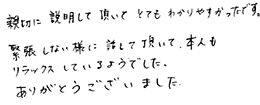 親切に説明して頂いてとてもわかりやすかったです。
緊張しない様に話して頂いて、本人も
リラックスしているようでした。
ありがとうございました。